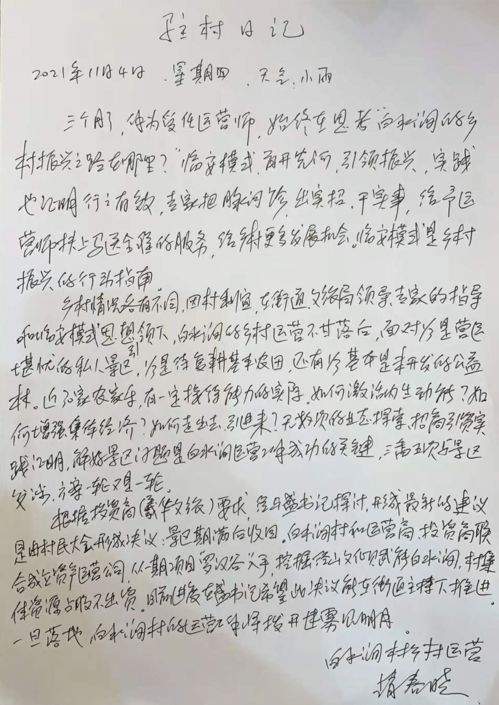 驻村日记
2021年11月4日 星期四 天气:小雨
三个月了,作为责任运营师,始终在思考"白水涧的乡
村振兴之路在哪里?"临安模式,首开先河,引领振兴,实践
也证明行之有效,专家把脉问诊,出实招,干实事,给予运
营师扶上马送全程的服务,给乡村更多发展机会。临安模式是乡村
振兴的行动指南。
乡村情况各有不同,因村制宜,在街道、文旅局领导、专家的指导
和临安模式思想领引下,白水涧的乡村运营不甘落后,面对的是营运
堪忧的私人景区,的是待复耕基本农田,还有的基本是未开发的公益
林。近万家农家乐,有一定接待能力的实际,如何激活内生动能?如
何增强集体经济?如何走出去,引进来?无数次的业态探索,招商引资实
践证明,解好景区问题是白水涧运营工作成功的关键,三番五次与景区
交涉,方案一轮又是一轮。
根据投资商(豪华文旅)要求,经与盛书记探讨,形成最新的建议
是由村民大会形成决议:景区期满后收回,白水涧村和运营商、投资商联
合成立资产运营公司,从一期项目"罗汉谷"入手,挖掘 山文化赋能白水涧,村集
体资源占股不出资。目前进展在盛书记希望此决议能在街道主持下推进,
一旦落地,白水涧村的运营工作将拨开迷雾见明月。
白水涧村乡村运营